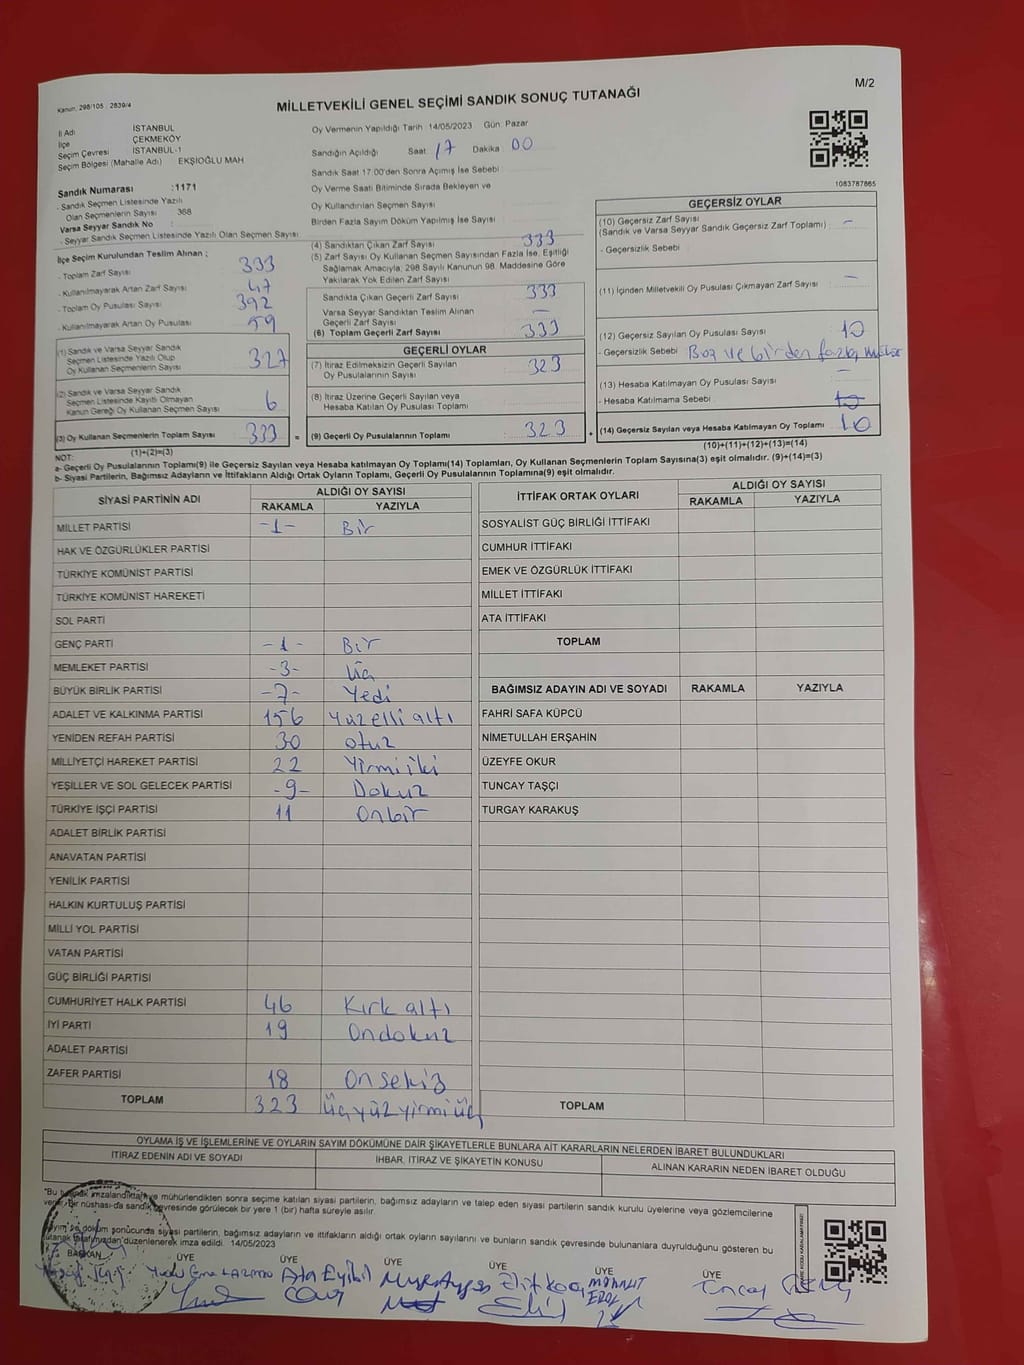 Kanun. 298/105 : 2839/4
M/2
MİLLETVEKİLİ GENEL SEÇİMİ SANDIK SONUÇ TUTANAĞI
İl Adı İSTANBUL
İlçe ÇEKMEKÖY
Seçim Çevresi İSTANBUL-1
Seçim Bölgesi (Mahalle Adı) EKŞİOĞLU MAH
Oy Vermenin Yapıldığı Tarih :14/05/2023 Gün: Pazar
Sandığın Açıldığı Saat: 17 Dakika: 00
Sandık Saat 17:00'den Sonra Açımış İse Sebebi
Oy Verme Saati Bitiminde Sırada Bekleyen ve
Oy Kullandırılan Seçmen Sayısı
Birden Fazla Sayım Döküm Yapılmış İse Sayısı
1083787865
Sandık Numarası :1171
- Sandık Seçmen Listesinde Yazılı
Olan Seçmenlerin Sayısı 368
Varsa Seyyar Sandık No
- Seyyar Sandık Seçmen Listesinde Yazılı Olan Seçmen Sayısı
İlçe Seçim Kurulundan Teslim Alınan ;
- Toplam Zarf Sayısı 333
- Kullanılmayarak Artan Zarf Sayısı 47
- Toplam Oy Pusulası Sayısı 392
- Kullanılmayarak Artan Oy Pusulası 59
(1) Sandık ve Varsa Seyyar Sandık
Seçmen Listesinde Yazılı Olup
Oy Kullanan Seçmenlerin Sayısı 327
(2) Sandık ve Varsa Seyyar Sandık
Seçmen Listesinde Kayıtlı Olmayan
Kanun Gereği Oy Kullanan Seçmen Sayısı 6
(3) Oy Kullanan Seçmenlerin Toplam Sayısı 333 =
(1)+(2)=(3)
(4) Sandıktan Çıkan Zarf Sayısı 333
(5) Zarf Sayısı Oy Kullanan Seçmen Sayısından Fazla İse, Eşitliği
Sağlamak Amacıyla; 298 Sayılı Kanunun 98. Maddesine Göre
Yakılarak Yok Edilen Zarf Sayısı
Sandıkta Çıkan Geçerli Zarf Sayısı 333
Varsa Seyyar Sandıktan Teslim Alınan
Geçerli Zarf Sayısı —
(6) Toplam Geçerli Zarf Sayısı 333
GEÇERLİ OYLAR
(7) İtiraz Edilmeksizin Geçerli Sayılan
Oy Pusulalarının Sayısı 323
(8) İtiraz Üzerine Geçerli Sayılan veya
Hesaba Katılan Oy Pusulası Toplamı
(9) Geçerli Oy Pusulalarının Toplamı 323 +
GEÇERSİZ OYLAR
(10) Geçersiz Zarf Sayısı
(Sandık ve Varsa Seyyar Sandık Geçersiz Zarf Toplamı) —
- Geçersizlik Sebebi
(11) İçinden Milletvekili Oy Pusulası Çıkmayan Zarf Sayısı —
(12) Geçersiz Sayılan Oy Pusulası Sayısı 10
- Geçersizlik Sebebi Boş ve birden fazla mühür
(13) Hesaba Katılmayan Oy Pusulası Sayısı —
- Hesaba Katılmama Sebebi 10
(14) Geçersiz Sayılan veya Hesaba Katılmayan Oy Toplamı 10
(10)+(11)+(12)+(13)=(14)
NOT:
a- Geçerli Oy Pusulalarının Toplamı(9) ile Geçersiz Sayılan veya Hesaba katılmayan Oy Toplamı(14) Toplamları, Oy Kullanan Seçmenlerin Toplam Sayısına(3) eşit olmalıdır. (9)+(14)=(3)
b- Siyasi Partilerin, Bağımsız Adayların ve İttifakların Aldığı Ortak Oyların Toplamı, Geçerli Oy Pusulalarının Toplamına(9) eşit olmalıdır.
SİYASİ PARTİNİN ADI ALDIĞI OY SAYISI
RAKAMLA YAZIYLA
MİLLET PARTİSİ -1- Bir
HAK VE ÖZGÜRLÜKLER PARTİSİ
TÜRKİYE KOMÜNİST PARTİSİ
TÜRKİYE KOMÜNİST HAREKETİ
SOL PARTİ
GENÇ PARTİ -1- Bir
MEMLEKET PARTİSİ -3- Üç
BÜYÜK BİRLİK PARTİSİ -7- Yedi
ADALET VE KALKINMA PARTİSİ 156 Yüzelli altı
YENİDEN REFAH PARTİSİ 30 otuz
MİLLİYETÇİ HAREKET PARTİSİ 22 Yirmi iki
YEŞİLLER VE SOL GELECEK PARTİSİ -9- Dokuz
TÜRKİYE İŞÇİ PARTİSİ 11 Onbir
ADALET BİRLİK PARTİSİ
ANAVATAN PARTİSİ
YENİLİK PARTİSİ
HALKIN KURTULUŞ PARTİSİ
MİLLİ YOL PARTİSİ
VATAN PARTİSİ
GÜÇ BİRLİĞİ PARTİSİ
CUMHURİYET HALK PARTİSİ 46 Kırk altı
İYİ PARTİ 19 Ondokuz
ADALET PARTİSİ
ZAFER PARTİSİ 18 Onsekiz
TOPLAM 323 Üçyüzyirmiüç
İTTİFAK ORTAK OYLARI ALDIĞI OY SAYISI
RAKAMLA YAZIYLA
SOSYALİST GÜÇ BİRLİĞİ İTTİFAKI
CUMHUR İTTİFAKI
EMEK VE ÖZGÜRLÜK İTTİFAKI
MİLLET İTTİFAKI
ATA İTTİFAKI
TOPLAM
BAĞIMSIZ ADAYIN ADI VE SOYADI RAKAMLA YAZIYLA
FAHRİ SAFA KÜPCÜ
NİMETULLAH ERŞAHİN
ÜZEYFE OKUR
TUNCAY TAŞÇI
TURGAY KARAKUŞ
TOPLAM
OYLAMA İŞ VE İŞLEMLERİNE VE OYLARIN SAYIM DÖKÜMÜNE DAİR ŞİKAYETLERLE BUNLARA AİT KARARLARIN NELERDEN İBARET BULUNDUKLARI
İTİRAZ EDENİN ADI VE SOYADI İHBAR, İTİRAZ VE ŞİKAYETİN KONUSU ALINAN KARARIN NEDEN İBARET OLDUĞU
*Bu tutanak imzalandıktan ve mühürlendikten sonra seçime katılan siyasi partilerin, bağımsız adayların ve talep eden siyasi partilerin sandık kurulu üyelerine veya gözlemcilerine
verilir, bir nüshası da sandık çevresinde görülecek bir yere 1 (bir) hafta süreyle asılır.
Sayım ve döküm sonucunda siyasi partilerin, bağımsız adayların ve ittifakların aldığı ortak oyların sayılarını ve bunların sandık çevresinde bulunanlara duyrulduğunu gösteren bu
tutanak tarafımızdan düzenlenerek imza edildi. 14/05/2023
BAŞKAN ÜYE ÜYE ÜYE ÜYE ÜYE ÜYE